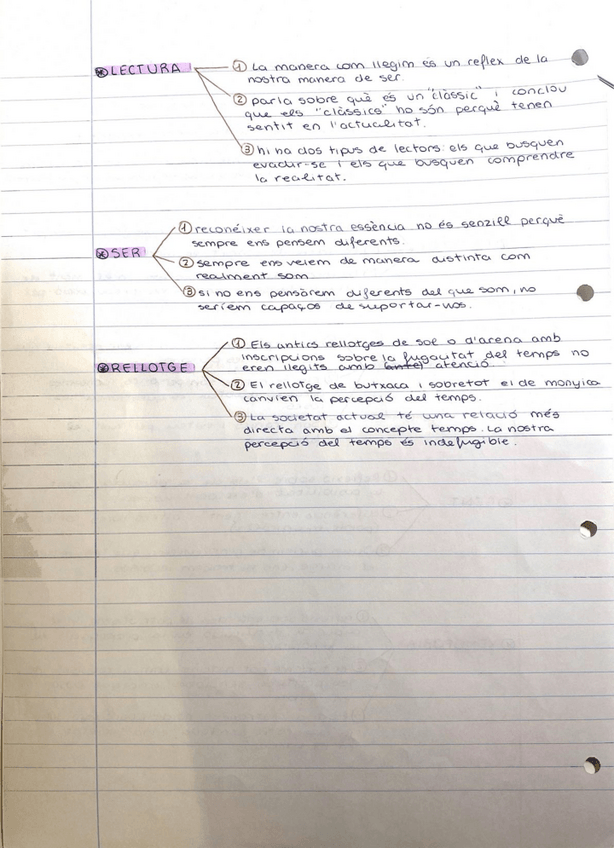 LECTURA
① La manera com llegim és un reflex de la
nostra manera de ser.
② parla sobre què és un "clàssic" i conclou
que els "clàssics" ho són perquè tenen
sentit en l'actualitat.
③ hi ha dos tipus de lectors: els que busquen
evadir-se i els que busquen comprendre
la realitat.
SER
① reconèixer la nostra essència no és senzill perquè
sempre ens pensem diferents.
② sempre ens veiem de manera distinta com
realment som
③ si no ens pensàrem diferents del que som, no
seríem capaços de suportar-nos.
RELLOTGE
① Els antics rellotges de sol o d'arena amb
inscripcions sobre la fugacitat del temps no
eren llegits amb atenció.
② El rellotge de butxaca i sobretot el de monyica
canvien la percepció del temps.
③ La societat actual té una relació més
directa amb el concepte temps. La nostra
percepció del temps és indefugible.